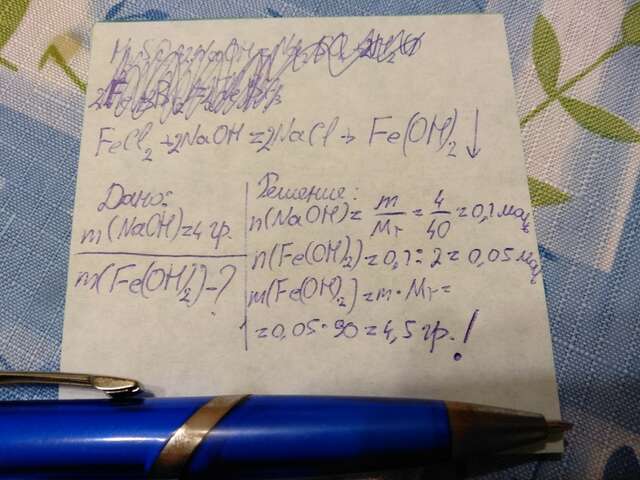 FeCl₂ + 2NaOH = 2NaCl + Fe(OH)₂↓
Дано:
m(NaOH)=4 гр.
m(Fe(OH)₂)-?
Решение:
n(NaOH)= m/Mr = 4/40 = 0,1 моль
n(Fe(OH)₂)=0,1:2=0,05 моль
m(Fe(OH)₂)=m·Mr=
=0,05·90=4,5 гр.!